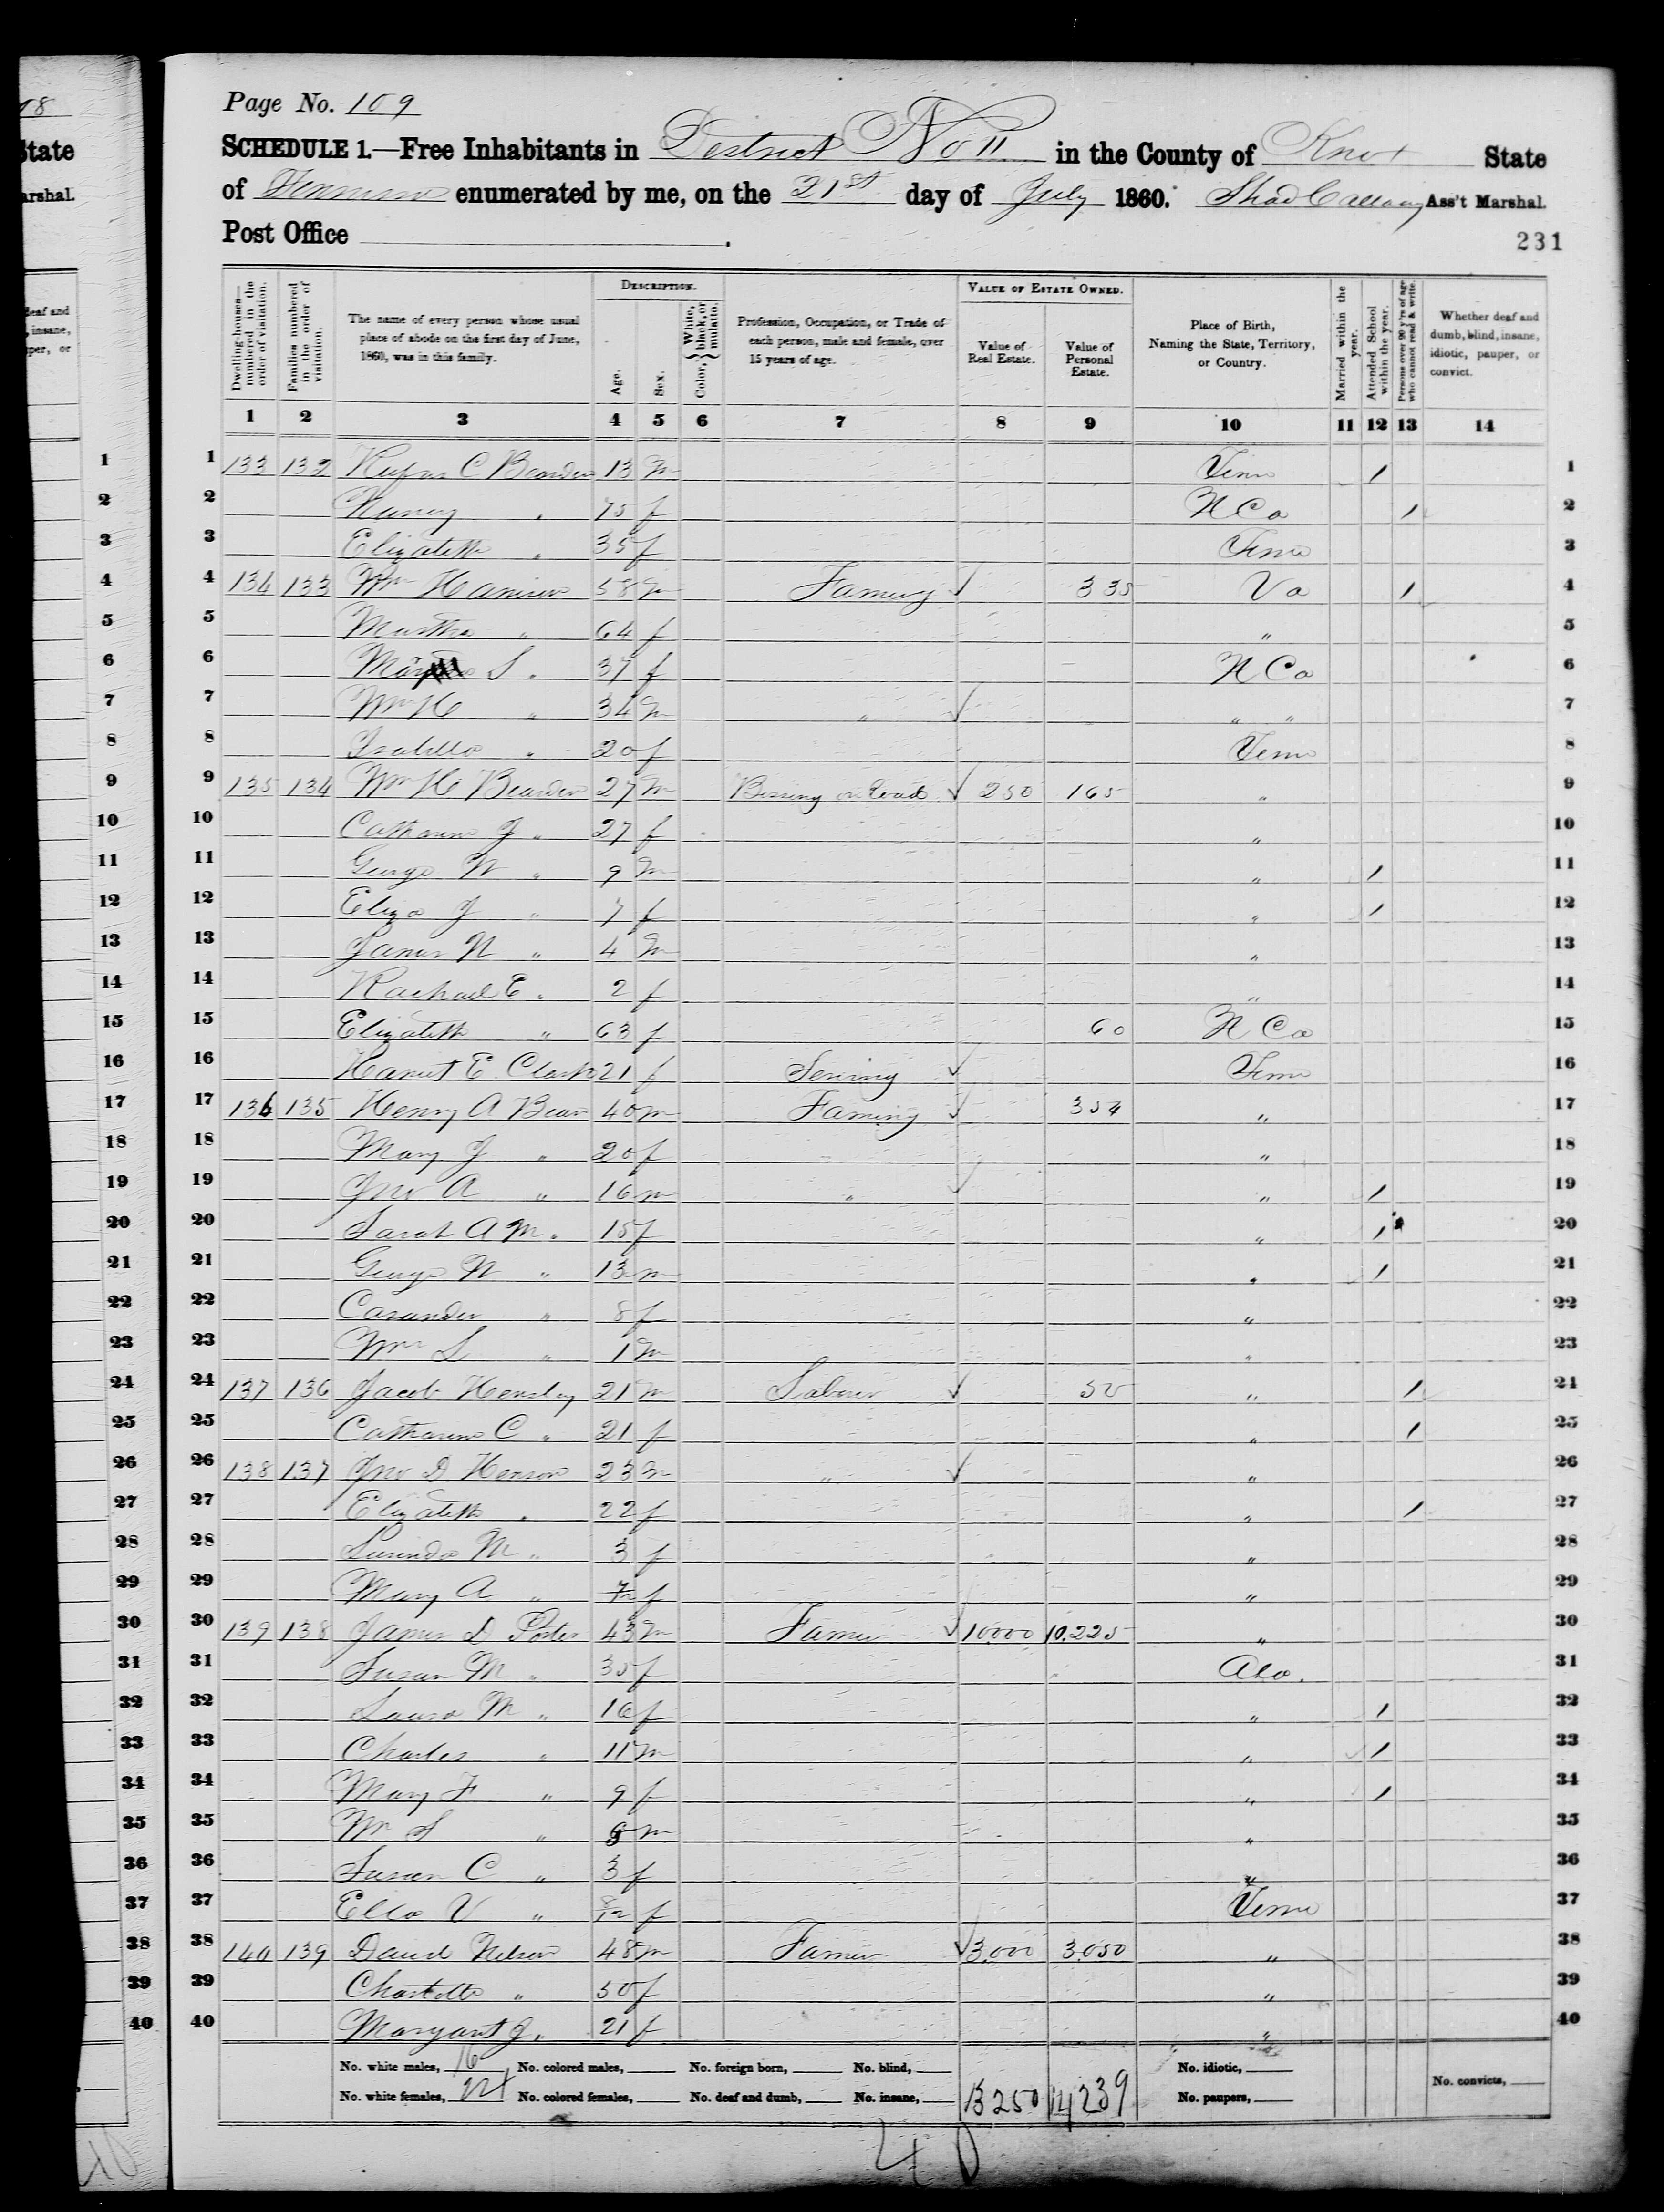 Page No. 109
SCHEDULE 1.—Free Inhabitants in District No 11 in the County of Knox State
of Tennessee enumerated by me, on the 21st day of July 1860. Ass't Marshal.
Post Office
231
DESCRIPTION. VALUE OF ESTATE OWNED.
Dwelling-houses—numbered in the order of visitation. Families numbered in the order of visitation. The name of every person whose usual place of abode on the first day of June, 1860, was in this family. Age. Sex. Color, { White, black, or mulatto. Profession, Occupation, or Trade of each person, male and female, over 15 years of age. Value of Real Estate. Value of Personal Estate. Place of Birth, Naming the State, Territory, or Country. Married within the year. Attended School within the year. Persons over 20 y'rs of age who cannot read & write. Whether deaf and dumb, blind, insane, idiotic, pauper, or convict.
1 2 3 4 5 6 7 8 9 10 11 12 13 14
1 133 132 Rufus C Bearden 13 m Tenn / 1
2 Nancy " 75 f N Ca / 2
3 Elizabeth " 35 f Tenn 3
4 134 133 Wm Harrison 58 m Farming 335 Va / 4
5 Martha " 64 f " 5
6 S " 37 f N Ca 6
7 Wm H " 34 m " " " 7
8 Isabella " 20 f Tenn 8
9 135 134 Wm H Bearden 27 m 250 165 " 9
10 Catharine J " 27 f " 10
11 George W " 9 m " / 11
12 Eliza J " 7 f " / 12
13 James N " 4 m " 13
14 Rachael E " 2 f " 14
15 Elizabeth " 63 f 60 N Ca 15
16 Harriet E. 21 f Tenn 16
17 136 135 Henry A 40 m Farming 354 " 17
18 Mary J " 20 f " 18
19 Jno A " 16 m " " / 19
20 Sarah A M " 15 f " / 20
21 George W " 13 m " / 21
22 " 8 f " 22
23 Wm S " 1 m " 23
24 137 136 Jacob Hensley 21 m Laborer 50 " / 24
25 Catharine C " 21 f " / 25
26 138 137 Jno D. Henson 23 m " " 26
27 Elizabeth " 22 f " / 27
28 M " 3 f " 28
29 Mary A " 7/12 f " 29
30 139 138 James D Porter 43 m Farmer 10000 10,225 " 30
31 Susan M " 35 f Ala. 31
32 Laura M " 16 f " / 32
33 Charles " 11 m " / 33
34 Mary F " 9 f " / 34
35 Wm S " m " 35
36 Susan C " 3 f " 36
37 Ella V " 8/12 f Tenn 37
38 140 139 David Nelson 48 m Farmer 3,000 3050 " 38
39 Charlotte " 50 f " 39
40 Margaret J. " 21 f " 40
No. white males, 16 No. colored males, No. foreign born, No. blind, No. idiotic,
No. white females, 24 No. colored females, No. deaf and dumb, No. insane, 13250 14239 No. paupers, No. convicts,
40